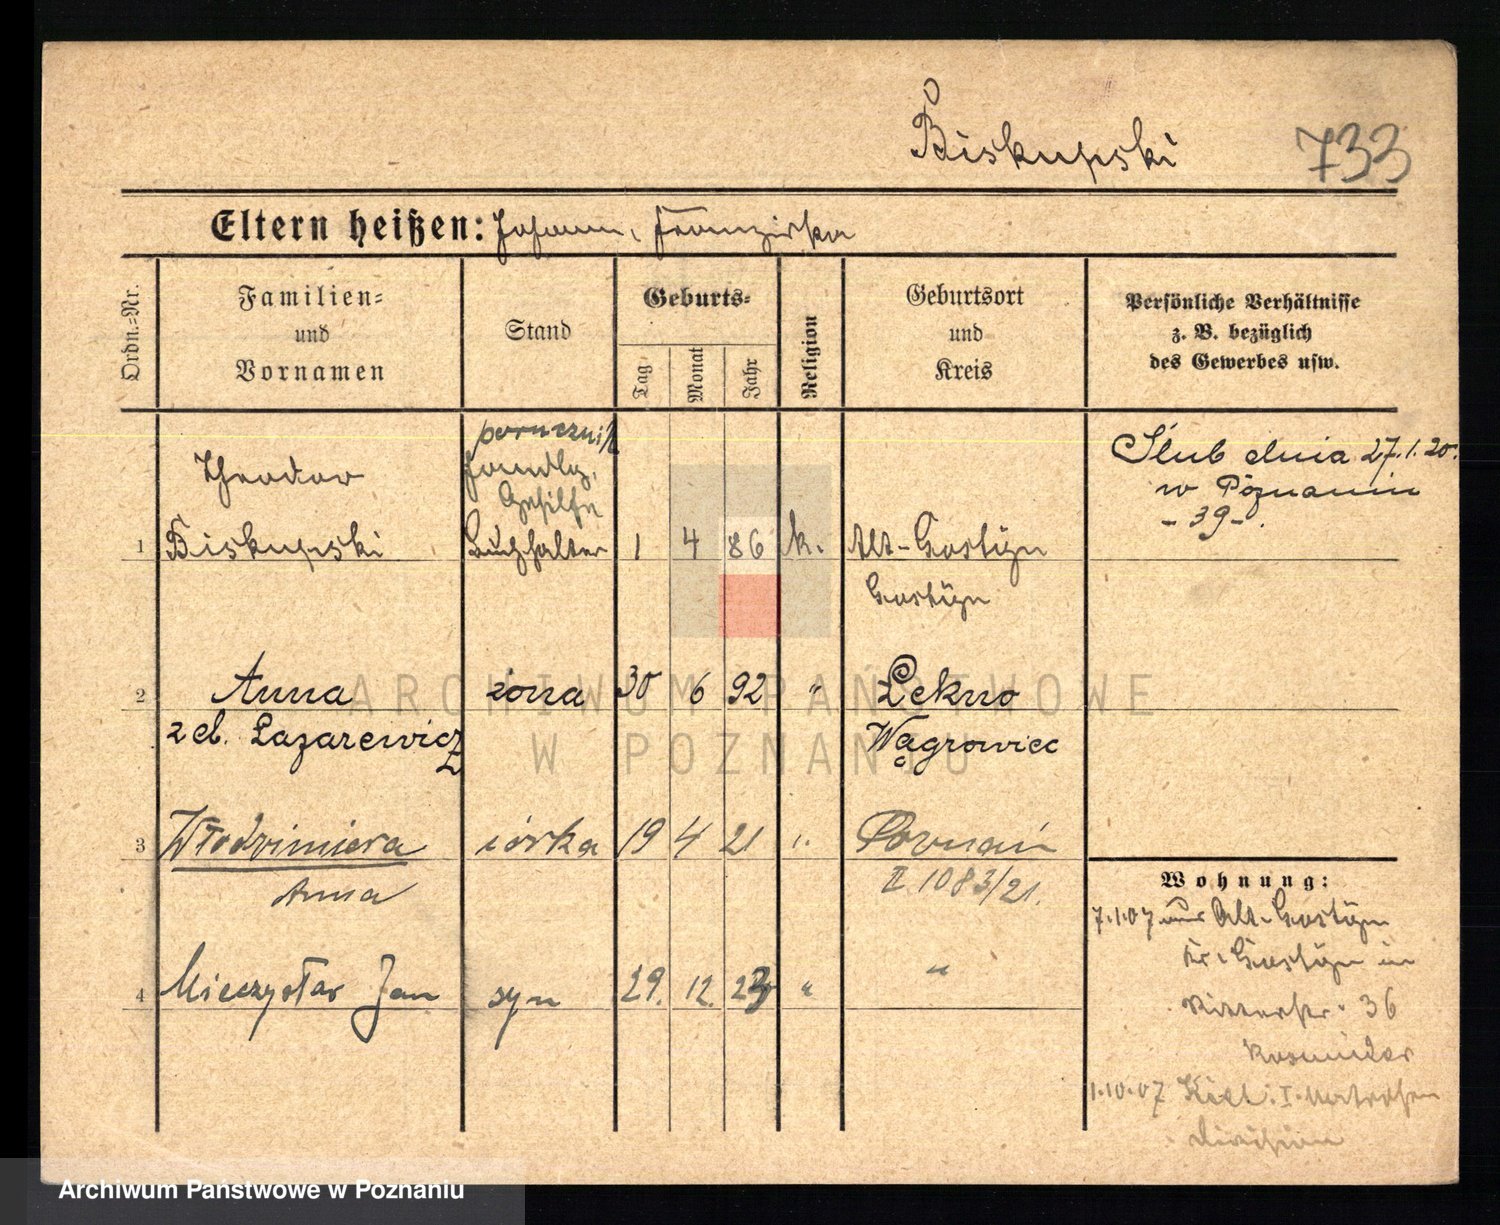 Biskupski
733
Eltern heißen: Johann, Franziska
Ordn.=Nr.
Familien=
und
Vornamen
Stand
Geburts=
Tag
Monat
Jahr
Religion
Geburtsort
und
Kreis
Persönliche Verhältnisse
z. B. bezüglich
des Gewerbes usw.
porucznik
Theodor
Handlg.
Gehilfe
1 Biskupski Buchhalter 1 4 86 k. Alt-Gostÿn
Gostÿn
Ślub dnia 27.1.20.
w Poznaniu
-39-.
2 Anna żona 30 6 92 " Łekno
z d. Łazarewicz
Wągrowiec
3 Włodzimiera córka 19 4 21 " Poznań
Anna
II 1083/21.
4 Mieczysław Jan syn 29. 12. 23 " "
Wohnung:
7.1.07 aus Alt-Gostÿn
Kr. Gostÿn in
Ritterstr. 36
1.10.07 Kiel. I. Matrosen
Division
ARCHIWUM PAŃSTWOWE
W POZNANIU
Archiwum Państwowe w Poznaniu